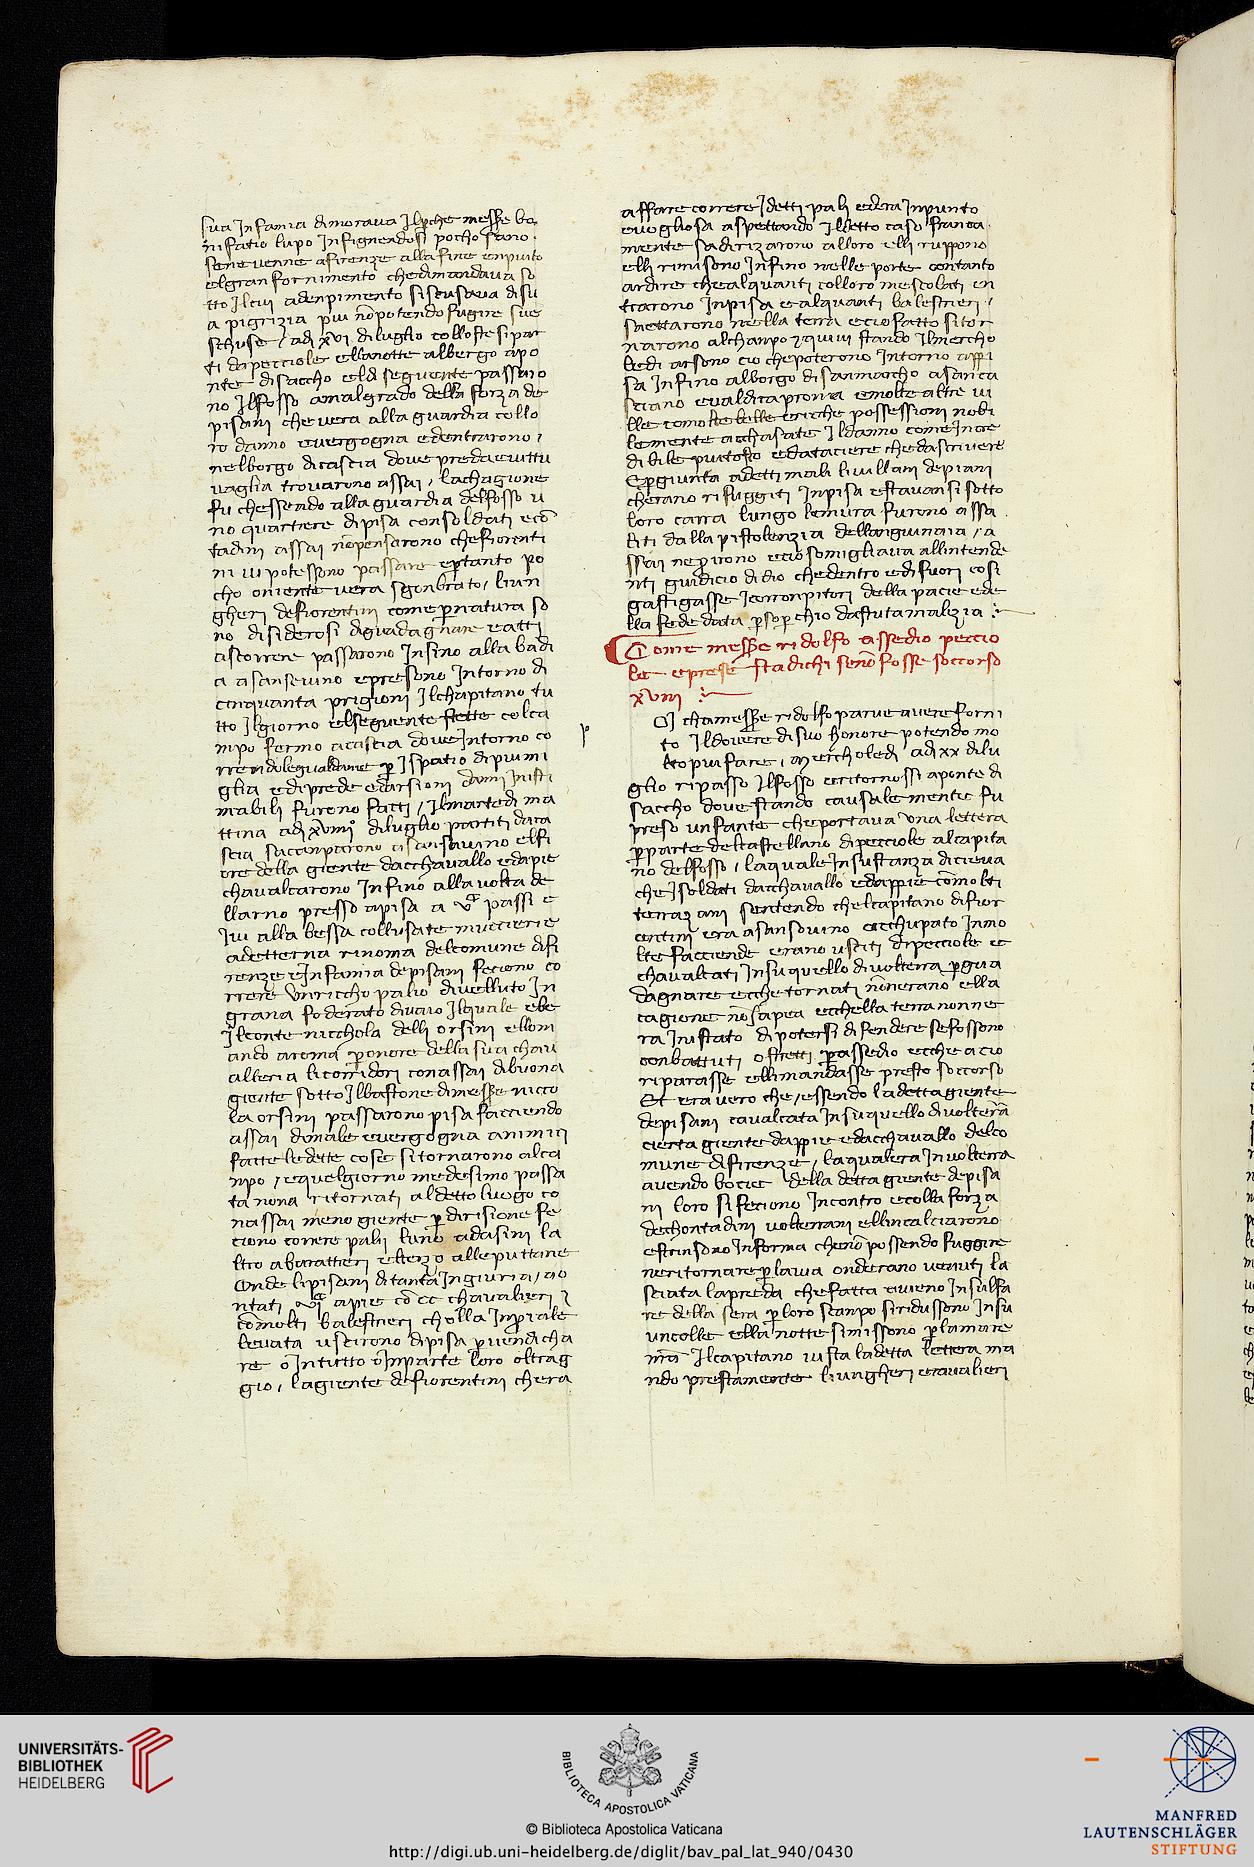 sua infamia dimorava Ilperche messere bo
nifatio lupo infignendosi pocho sano
sene venne afirenze alla fine enpiuto
elgran fornimento chedimandava so
tto Ilcui adenpimento siscusava disu
a pigrizia piu nōpotendo fugire sue
schuse / adj xvi diluglio colloste sipar
ti dapecciole ellanotte albergo apo
nte disaccho eldi seguente passaro
no Ilfosso amalgrado della forza de
pisani chevera alla guardia collo
ro danno evergogna edentrarono /
nelborgo dicascia dove preda evittu
vaglia trovarono assai / lachagione
fu chessendo alla guardia delfosso u
no quartiere dipisa consoldati econ
tadini assai nōpensarono chefiorenti
ni ivi potessono passare epertanto po
cho oniente vera sgonbrato / liun
gheri defiorentini come pernatura so
no disiderosi diguadagnare eatti
ascorrere passarono Insino alla badi
a asansevino epresono Intorno di
cinquanta prigioni Ilchapitano tu
tto Ilgiorno elseguente stette colca
mpo fermo acascia dove Intorno co
rrendolegualdane per Ispatio dipiumi
glia edi prede edarsioni danni Inisti
mabili furono fatti / Ilmartedi ma
ttina adj xviiii° diluglio partiti daca
scia saccanparono asansavino elfi
ore della giente dacchavallo edapie
chavalcarono Infino alla volta de
llarno presso apisa a vc passi e
Ivi alla bessa collusate mucierie
adetterna rinoma delcomune difi
renze eInfamia depisani feciono co
rrere Unriccho palio divelluto In
grana foderato divaio Ilquale ebe
Ilconte nicchola delli orsini ellom
ando aroma peronore della sua chav
alleria licorridori conassai dibuona
giente sotto Ilbastone dimessere nicco
la orsini passarono pisa facciendo
assai dimale evergogna animici
fatte ledette cose sitornarono alca
mpo / equelgiorno medesimo passa
ta nona ritornati aldetto luogo co
nassai meno giente per dirisione fe
ciono correre palii luno adasini la
ltro abarattieri elterzo alleputtane
Onde lipisani ditanta Ingiuria / ao
ntati apie cō cc chavalieri 7
cōmolti balestrieri cholla Inperiale
levata uscirono dipisa pervendicha
re o Intutto oInparte loro oltrag
gio / lagiente defiorentini chera
affare correre Idetti palii edera Inpunto
evogliosa aspettando Ildetto caso franca
mente sadirizarono alloro elli ruppono
elli rimisono Infino nelle porte contanto
ardire chealquanti colloro mescolati en
trarono Inpisa ealquanti balestrieri /
saettarono nella terra ecio fatto sitor
narono alchanpo 7quivi stando Ilmercho
ledi arsono cio chepoterono Intorno appi
sa Infino alborgo disanmarcho asanca
sciano evaldicaprona emolte altre vi
lle comolte belle ericche possessioni nobi
lemente acchasate Ildanno come Incre
dibile piutosto edatacere chedascrivere
Epergiunta adetti mali livillani depiani
cherano rifuggiti Inpisa estavansi sotto
loro carra lungo lemura furono assa
liti dalla pistolenzia dellanguinaia / a
ssai neperirono ecio somigliava allintende
nti giudicio di dio chedentro edifuori cosi
gastigasse Icorronpitori della pacie ede
lla fede data persoperchio dastuta malizia
Come messere ridolfo assedio peccio
le eprese stadichi senō fosse soccorso
xviii
OI chamessere ridolfo parve avere forni
to Ildovere disuo honore potendo mo
lto piu fare / mercholedi adj xx dilu
glio ripasso Ilfosso eritornossi aponte di
saccho dove stando causalemente fu
preso unfante cheportava una lettera
perparte delcastellano dipecciole alcapita
no delfosso / laquale Insustanza dicieva
che Isoldati dacchavallo edappie cōmolti
terrazani sentendo chelcapitano difior
entini era asansovino occhupato Inmo
lte facciende erano usciti dipecciole ec
chavalcati Insu quello divolterra pergua
dagnare ecche tornati nōnerano ella
cagione nōsapea ecchella terra nonne
ra Inistato dipotersi difendere sefossono
conbattuti ostretti perassedio ecche acio
riparasse ellimandasse presto soccorso
Et era vero che / essendo ladetta giente
depisani cavalcata Insu quello divolterra
cierta giente dappie edacchavallo delco
mune difirenze / laqualera Involterra
avendo bocie della detta giente depisa
ni loro sifeciono Incontro ecolla forza
dechontadini volterrani ellincalciarono
estrinsono Informa chenō possendo fuggire
neritornare perlavia onderano venuti la
sciata lapreda chefatta avieno Insulfa
re della sera perloro scanpo siridussono Insu
uncolle ella notte simissono perlamare
mā Ilcapitano vista ladetta lettera ma
ndo prestamente liungheri ecavalieri
p
UNIVERSITÄTS-
BIBLIOTHEK
HEIDELBERG
BIBLIOTECA APOSTOLICA VATICANA
© Biblioteca Apostolica Vaticana
http://digi.ub.uni-heidelberg.de/diglit/bav_pal_lat_940/0430
MANFRED
LAUTENSCHLÄGER
STIFTUNG